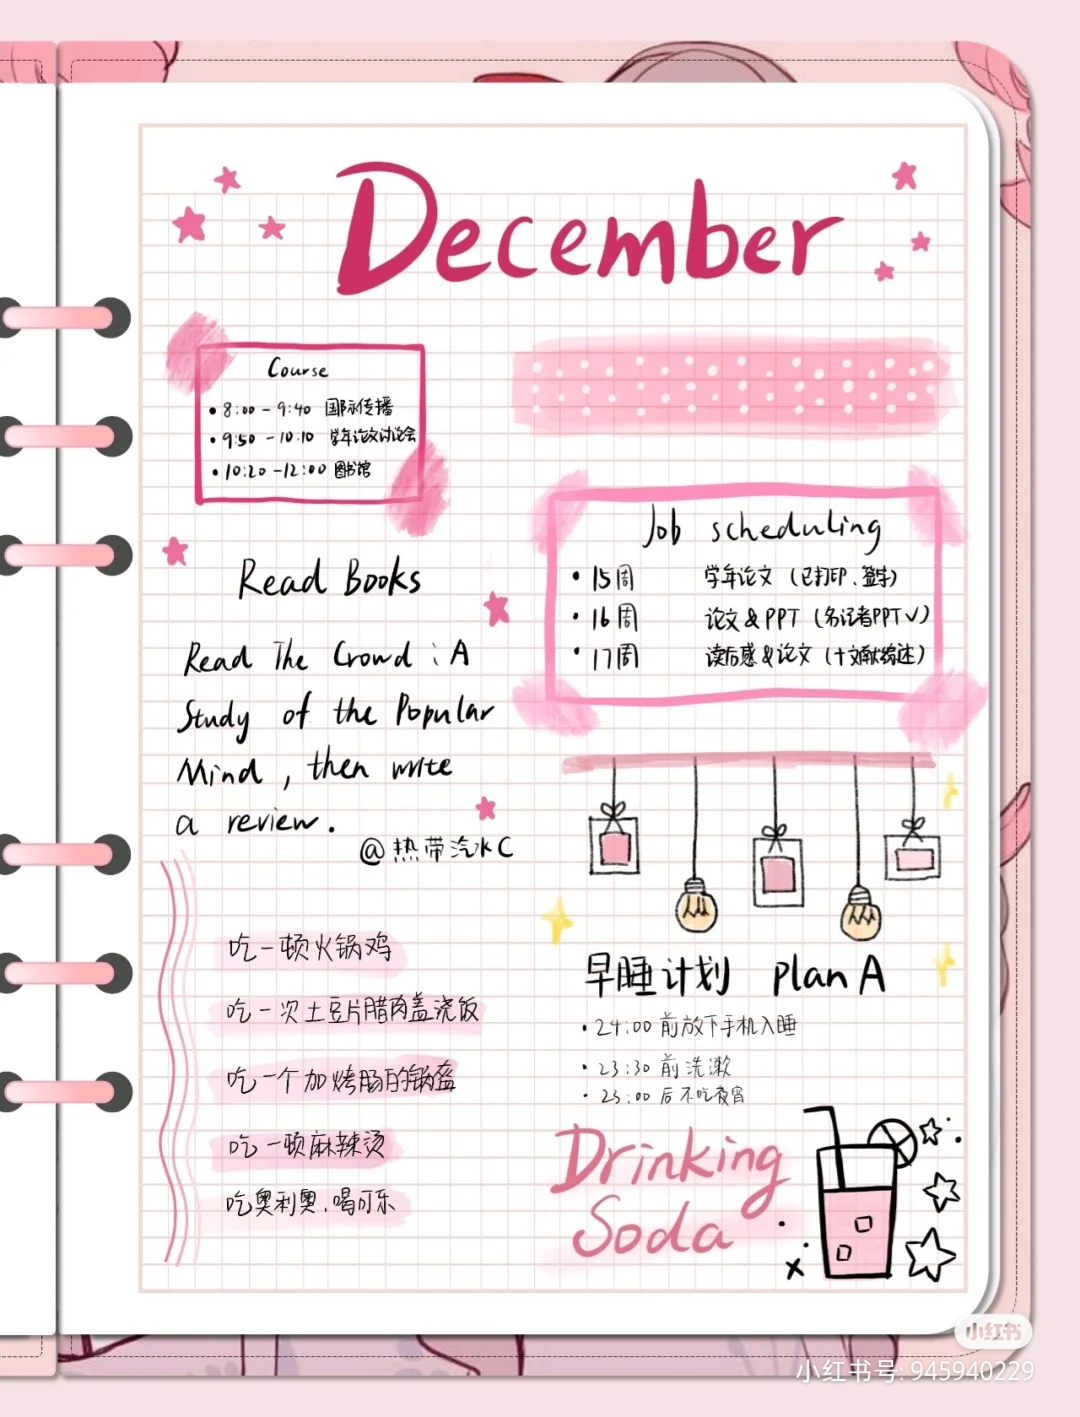 December
Course
• 8:00 - 9:40 国际传播
• 9:50 - 10:10 学年论文讨论会
• 10:20 - 12:00 图书馆
Read Books
Read The Crowd : A
Study of the Popular
Mind , then write
a review .
@热带汽水C
吃一顿火锅鸡
吃一次土豆片腊肉盖浇饭
吃一个加烤肠的锅盔
吃一顿麻辣烫
吃奥利奥、喝可乐
Job scheduling
• 15周 学年论文 (已打印、签字)
• 16周 论文&PPT (名记者PPT√)
• 17周 读后感&论文 (十文献综述)
早睡计划 plan A
• 24:00 前放下手机入睡
• 23:30 前洗漱
• 23:00 后不吃夜宵
Drinking
Soda
小红书
小红书号: 945940229